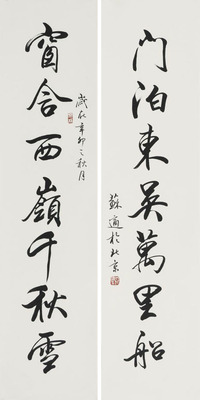 門泊東吳萬里船
蘇適於北京
歲在辛卯之秋月
窗含西嶺千秋雪